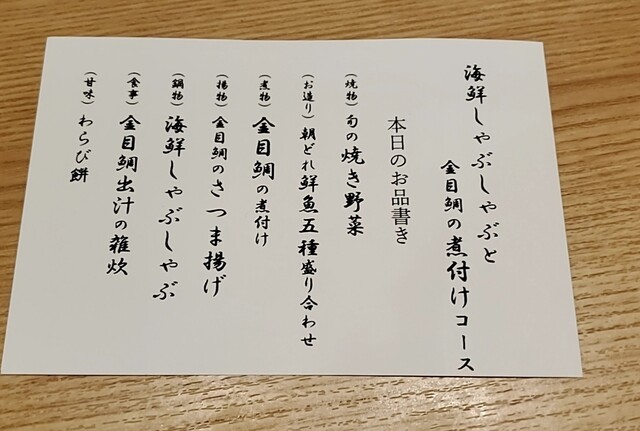 海鮮しゃぶしゃぶと
金目鯛の煮付けコース
本日のお品書き
（焼物）旬の焼き野菜
（お造り）朝どれ鮮魚五種盛り合わせ
（煮物）金目鯛の煮付け
（揚物）金目鯛のさつま揚げ
（鍋物）海鮮しゃぶしゃぶ
（食事）金目鯛出汁の雑炊
（甘味）わらび餅